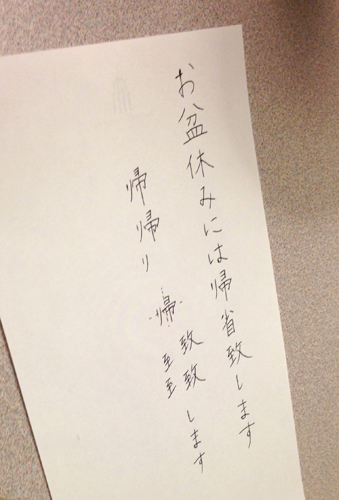 お盆休みには帰省致します
帰帰り 帰 致致します
至至